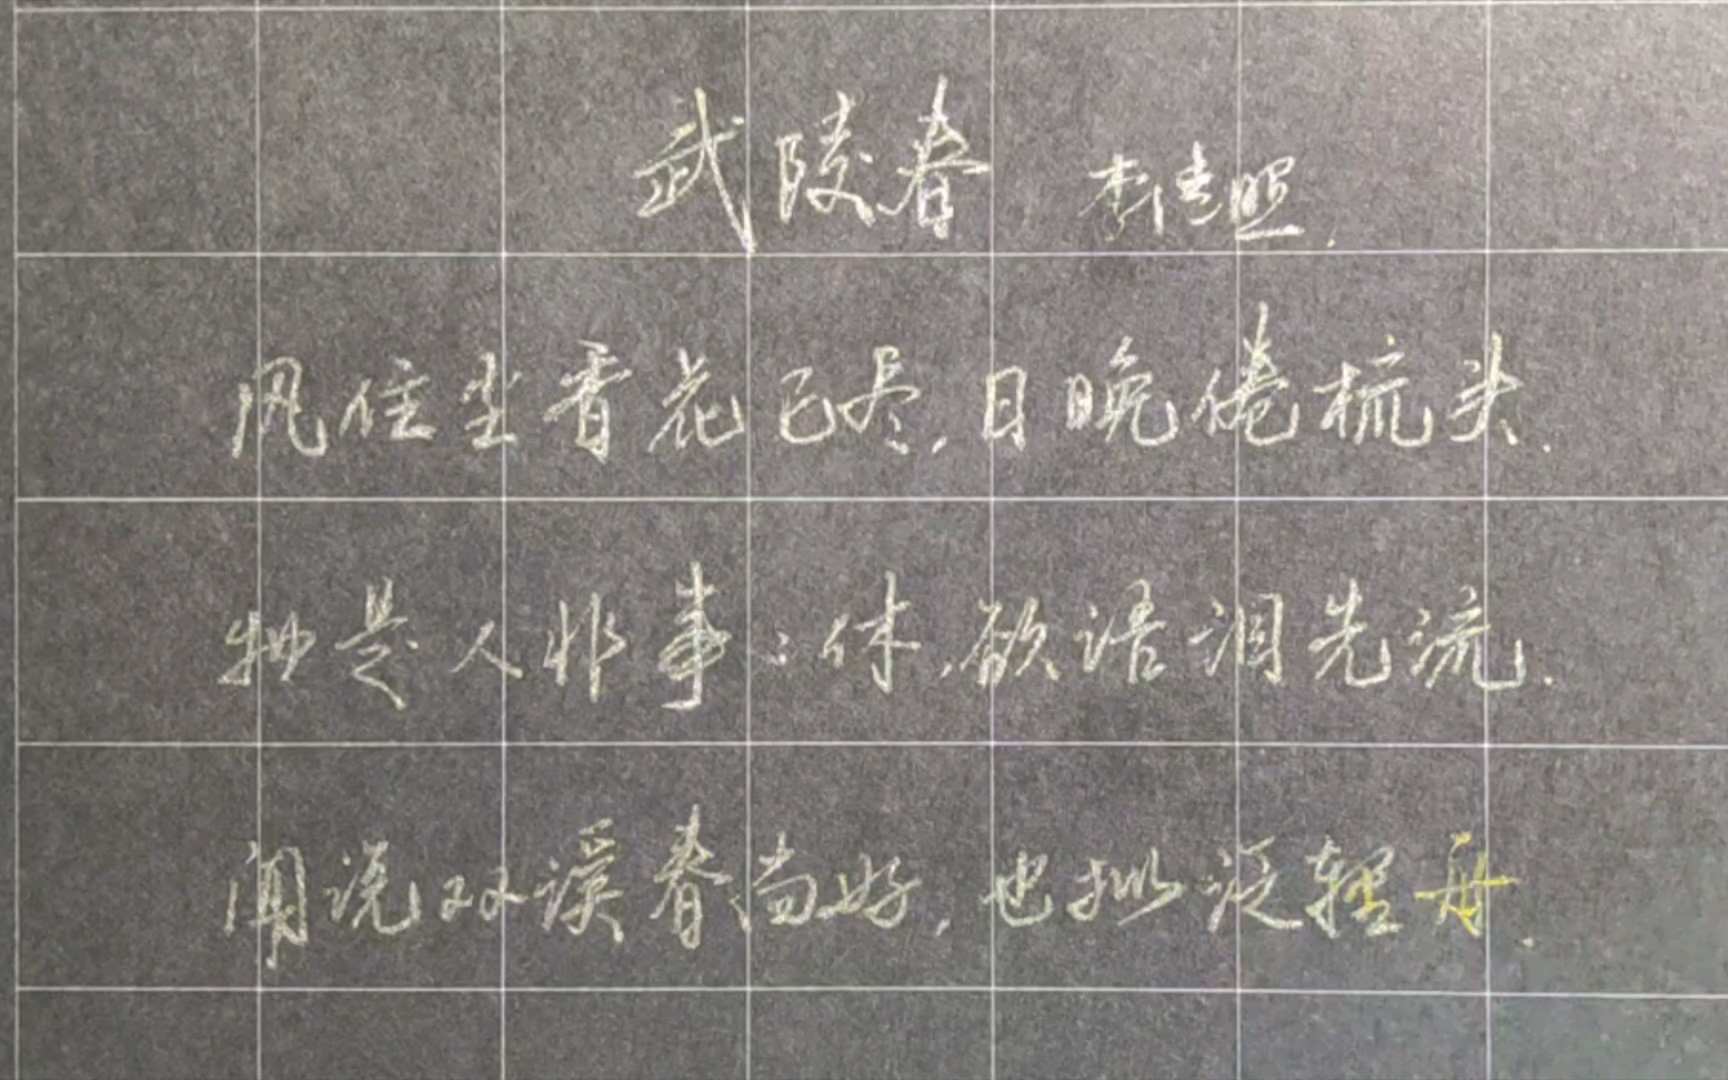 武陵春 李清照.
风住尘香花已尽,日晚倦梳头.
物是人非事:休,欲语泪先流.
闻说双溪春尚好,也拟泛轻舟.